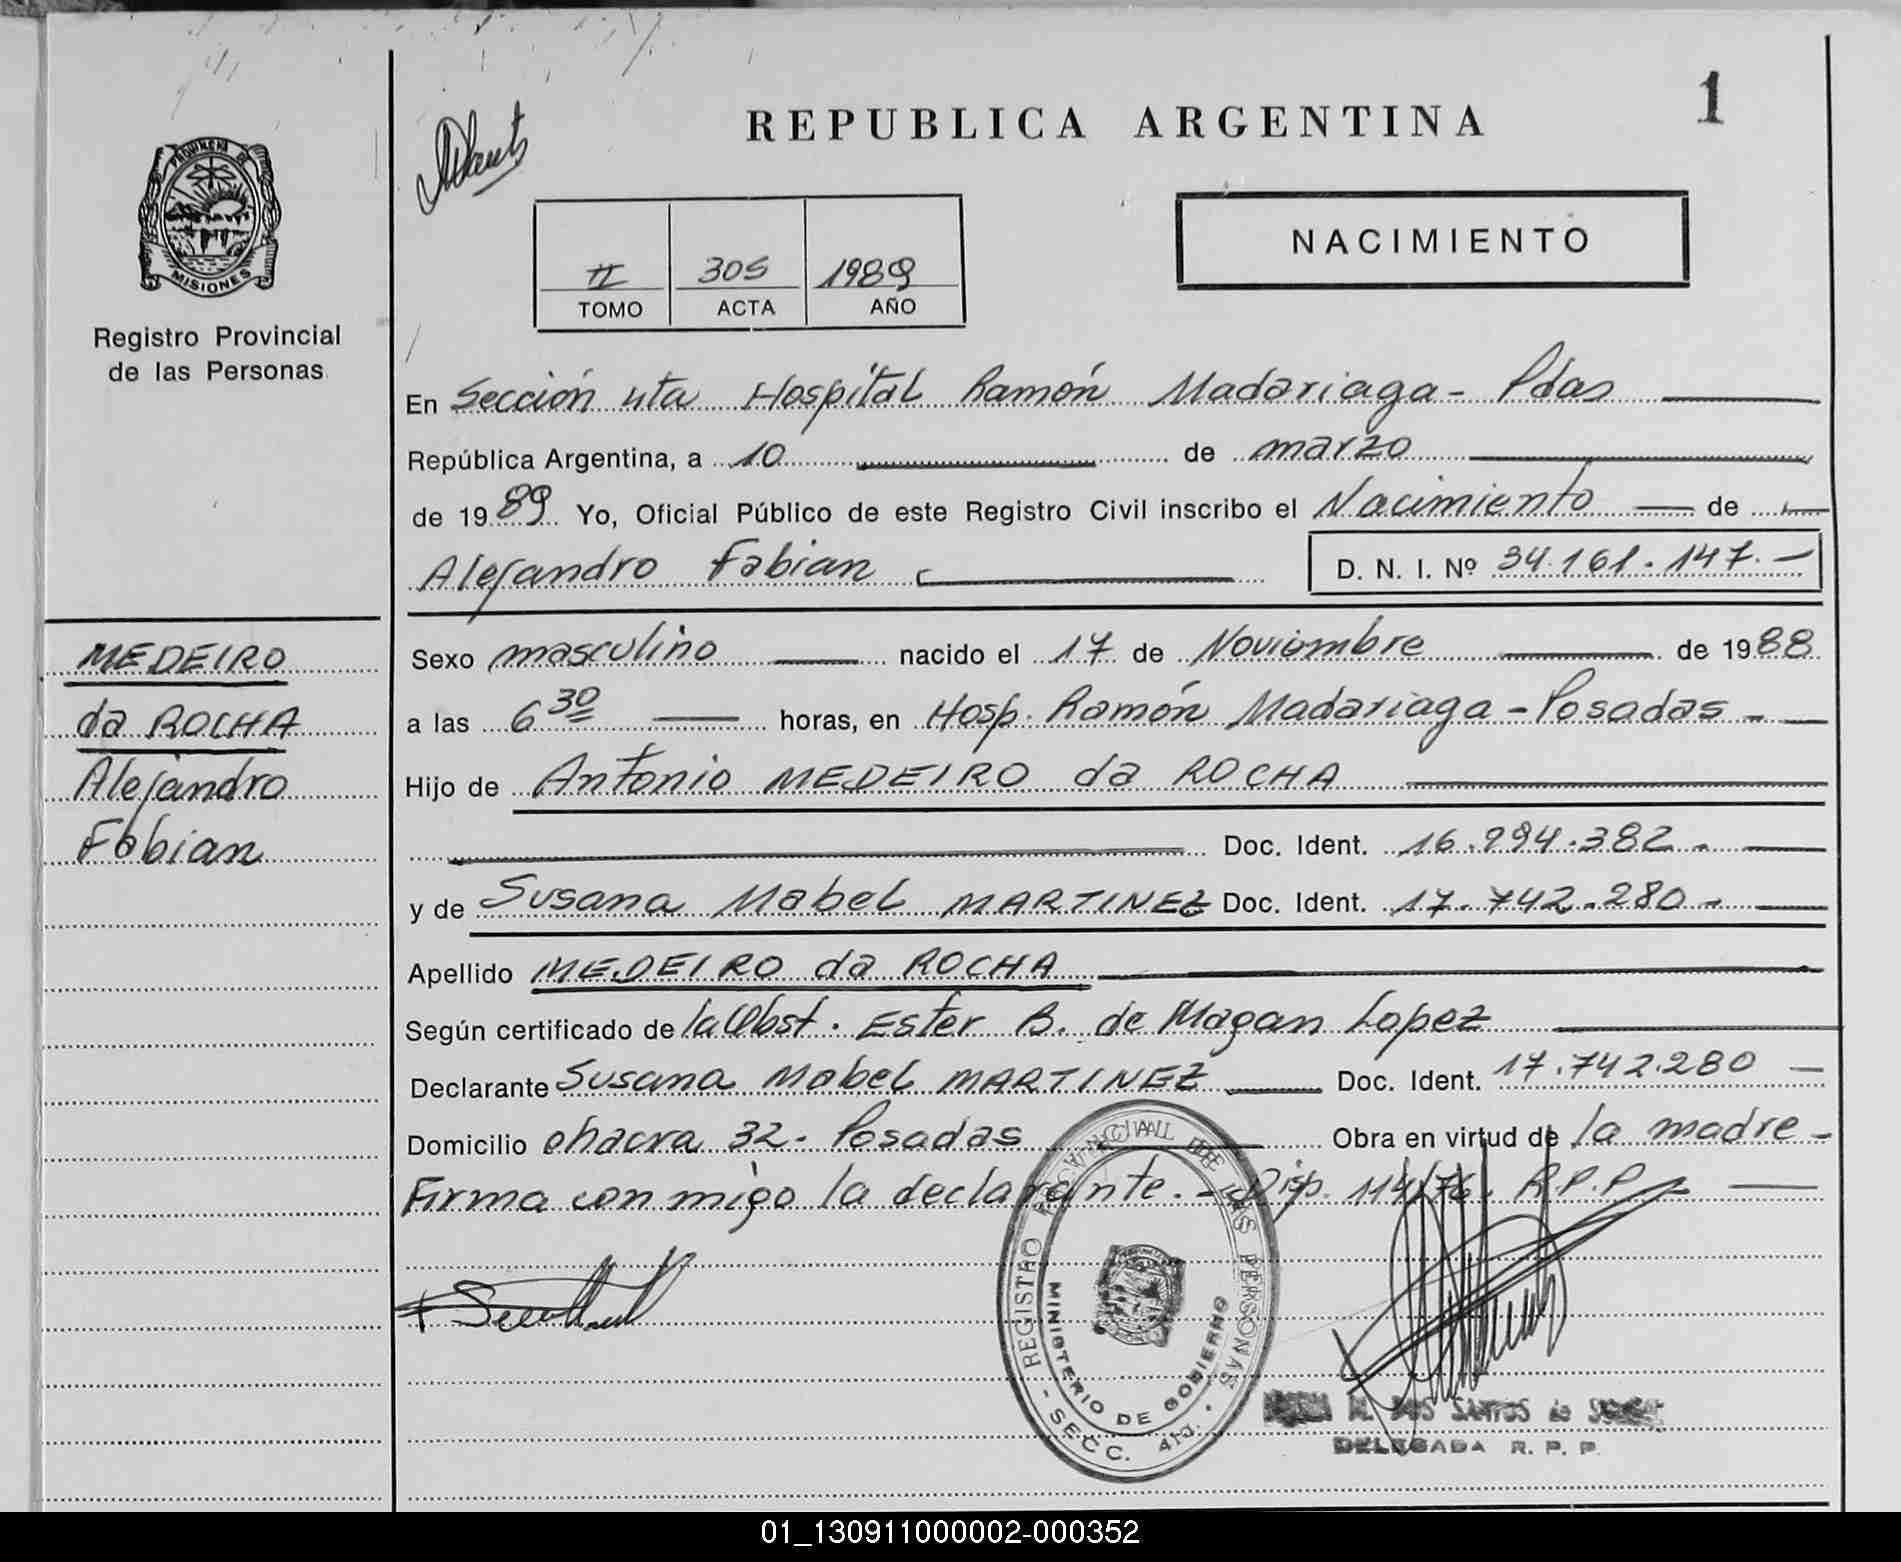 REPUBLICA ARGENTINA
1
PROVINCIA DE
MISIONES
Registro Provincial
de las Personas
II 305 1989
TOMO ACTA AÑO
NACIMIENTO
En Sección 4ta Hospital Ramón Madariaga - Pdas
República Argentina, a 10 de marzo
de 1989 Yo, Oficial Público de este Registro Civil inscribo el Nacimiento de
Alejandro Fabian D. N. I. Nº 34.161.147.-
MEDEIRO
da ROCHA
Alejandro
Fabian
Sexo masculino nacido el 17 de Noviembre de 1988
a las 6 30 horas, en Hosp. Ramón Madariaga - Posadas -
Hijo de Antonio MEDEIRO da ROCHA
Doc. Ident. 16.994.382.-
y de Susana Mabel MARTINEZ Doc. Ident. 17.742.280 -
Apellido MEDEIRO da ROCHA
Según certificado de la Obst. Ester B. de Magan Lopez
Declarante Susana Mabel MARTINEZ Doc. Ident. 17.742.280
Domicilio chacra 32 - Posadas Obra en virtud de la madre -
Firma con migo la declarante. - Disp. 114/76. R.P.P.
REGISTRO PROVINCIAL DE LAS PERSONAS
MINISTERIO DE GOBIERNO
- SECC. 4TO. -
M. DOS SANTOS de
DELEGADA R. P. P.
01_130911000002-000352